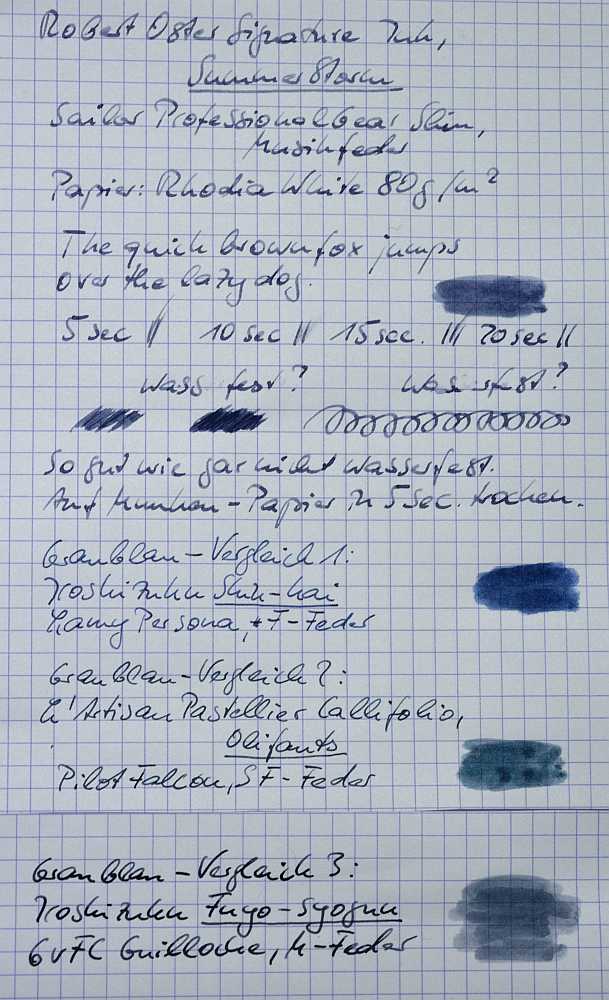 Robert Oster Signature Ink,
Summer Storm
Sailor Professional Gear Slim,
Musikfeder
Papier: Rhodia White 80g/m²
The quick brown fox jumps
over the lazy dog.
5 sec // 10 sec || 15 sec. ||| 20 sec ||
wasserfest? wasserfest?
So gut wie gar nicht wasserfest.
Auf Munken-Papier in 5 Sec. trocken.
Graublau-Vergleich 1:
Iroshizuku Shin-kai
Lamy Persona, F-Feder
Graublau-Vergleich 2:
L'Artisan Pastellier Callifolio,
Olifants
Pilot Falcon, SF-Feder
Graublau-Vergleich 3:
Iroshizuku Fuyo-Syogun
GvFC Guilloche, M-Feder